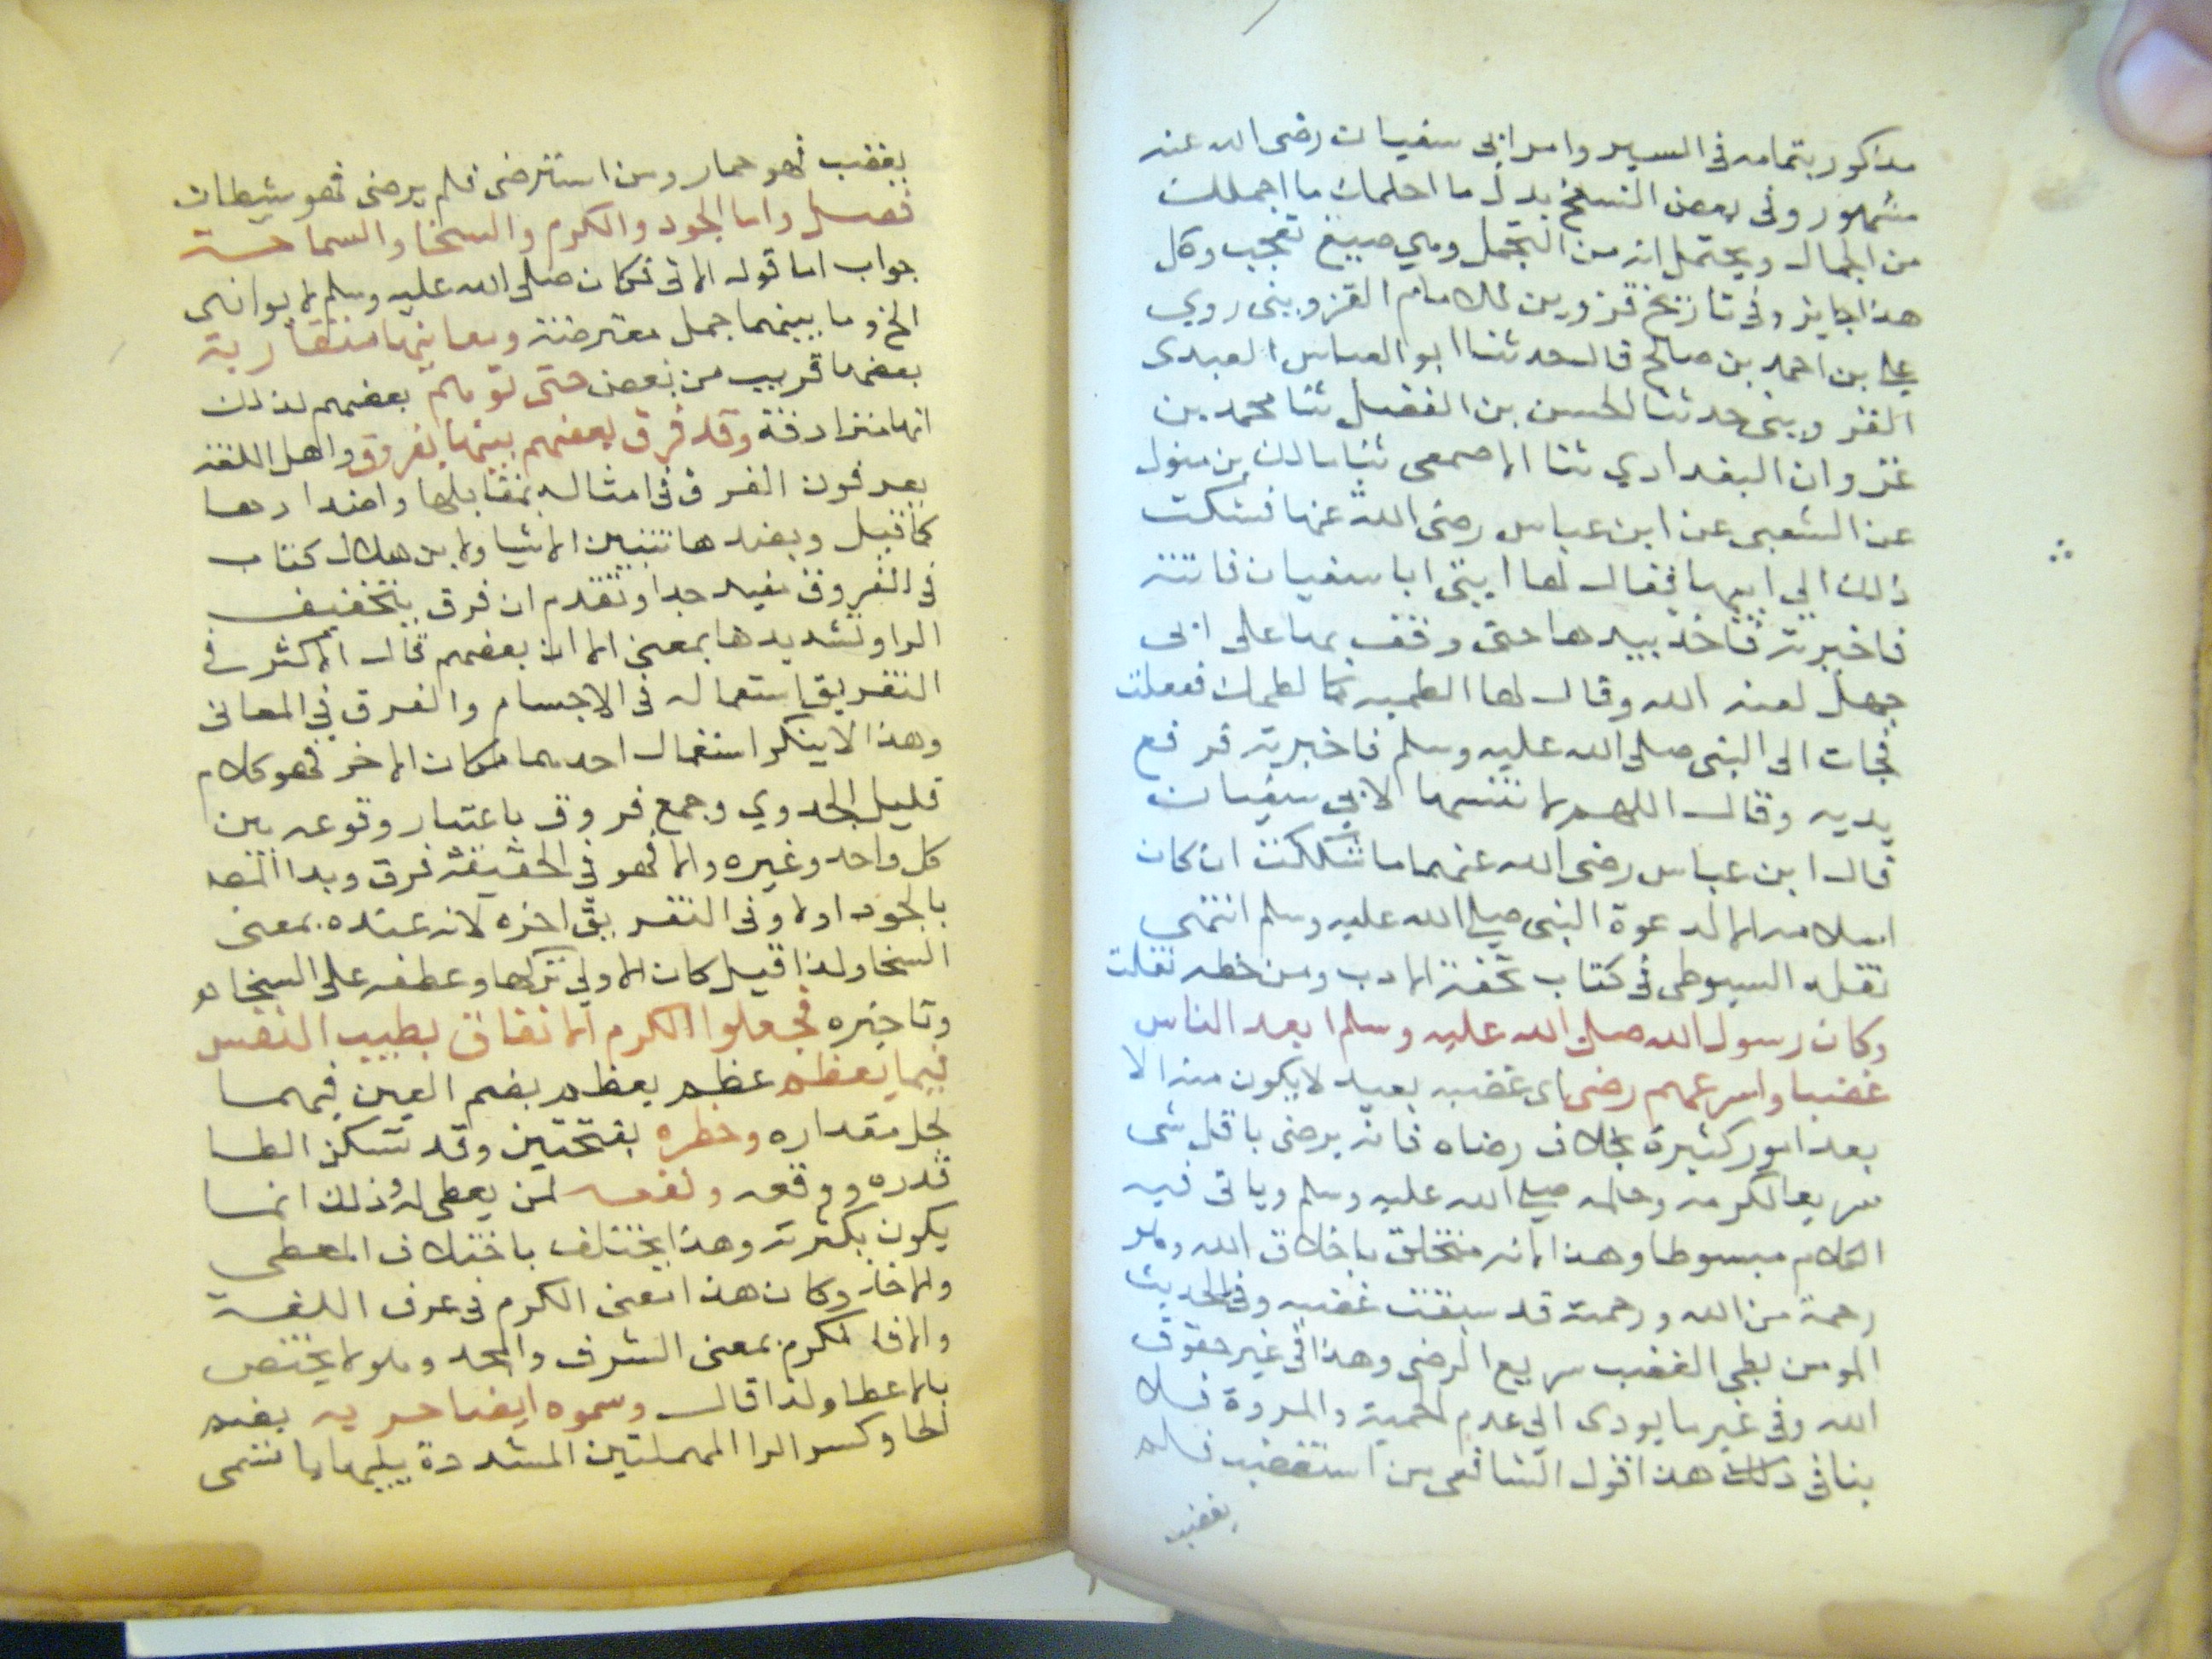 مذكور بتمامه في السير وامر ابي سفيان رضى الله عنه
مشهور وفى بعض النسخ بدل ما احلمك ما اجملك
من الجمال ويحتمل انه من التجمل وهي صيغ تعجب وكل
هذا جايز وفى تاريخ قزوين للامام القزوينى روي
علي بن احمد بن صالح قال حدثنا ابو العباس العبدى
القزوينى حدثنا الحسن بن الفضل ثنا محمد بن
غزوان البغدادي ثنا الاصمعى ثنا مالك بن مغول
عن الشعبى عن ابن عباس رضى الله عنها فشكت
ذلك الي ابيها فقال لها ايتى ابا سفيان فاتته
فاخبرته فاخذ بيدها حتى وقف بها على ابى
جهل لعنه الله وقال لها الطميه كما لطمك ففعلت
فجات الى النبى صلى الله عليه وسلم فاخبرته فرفع
يديه وقال اللهم لا تنسها لابي سفيان
قال ابن عباس رضى الله عنهما ما شككت ان كان
اسلامه الا لدعوة النبى صلي الله عليه وسلم انتهى
نقله السيوطى في كتاب تحفة الادب ومن خطه نقلت
وكان رسول الله صلى الله عليه وسلم ابعد الناس
غضبا واسرعهم رضى اى غضبه بعيد لا يكون منه الا
بعد امور كثيرة بخلاف رضاه فانه يرضى باقل شى
سريعا لكرمه وحلمه صلي الله عليه وسلم وياتى فيه
الكلام مبسوطا وهذا لانه متخلق باخلاق الله وهو
رحمة من الله ورحمته قد سبقت غضبه وفي الحديث
المومن بطي الغضب سريع الرضى وهذا في غير حقوق
الله وفى غير ما يودى الي عدم الحمية والمروة فلا
ينافى ذلك هذا قول الشافعى من استغضب فلم
يغضب
يغضب فهو حمار ومن استرضى فلم يرضى فهو شيطان
فصل واما الجود والكرم والسخا والسماحة
جواب اما قوله الاتى فكان صلى الله عليه وسلم لا يوازى
الخ وما بينهما جمل معترضة ومعانيها متقاربة
بعضها قريب من بعض حتى توهم بعضهم لذلك
انها مترادفة وقد فرق بعضهم بينها بفروق واهل اللغة
يعرفون الفرق في امثاله بمقابلها واضدادها
كما قيل وبضدها تتبين الاشيا ولابن هلال كتاب
في الفروق مفيد جدا وتقدم ان فرق بتخفيف
الرا وتشديدها بمعنى الا ان بعضهم قال الاكثر في
التفريق استعماله في الاجسام والفرق في المعانى
وهذا لا ينكر استعمال احدهما مكان الاخر فهو كلام
قليل الجدوي وجمع فروق باعتبار وقوعه بين
كل واحد وغيره والا فهو في الحقيقة فرق وبدا المص
بالجود اولا وفى التفريق اخره لانه عنده بمعنى
السخا ولذا قيل كان الاولي تركها وعطفه على السخا هو
وتاخيره فجعلوا الكرم الانفاق بطيب النفس
فيما يعظم عظم يعظم بضم العين فيهما
لجل مقداره وخطره بفتحتين وقد تسكن الطا
قدره ووقعه ونفعه لمن يعطى له وذلك انما
يكون بكثرته وهذا يختلف باختلاف المعطى
والاخذ وكان هذا معنى الكرم في عرف اللغة
والا فالكرم بمعنى الشرف والمجد وهو لا يختص
بالاعطا ولذا قال وسموه ايضا حرية بضم
الحا وكسر الرا المهملتين المشددة يليها يا تنتهى